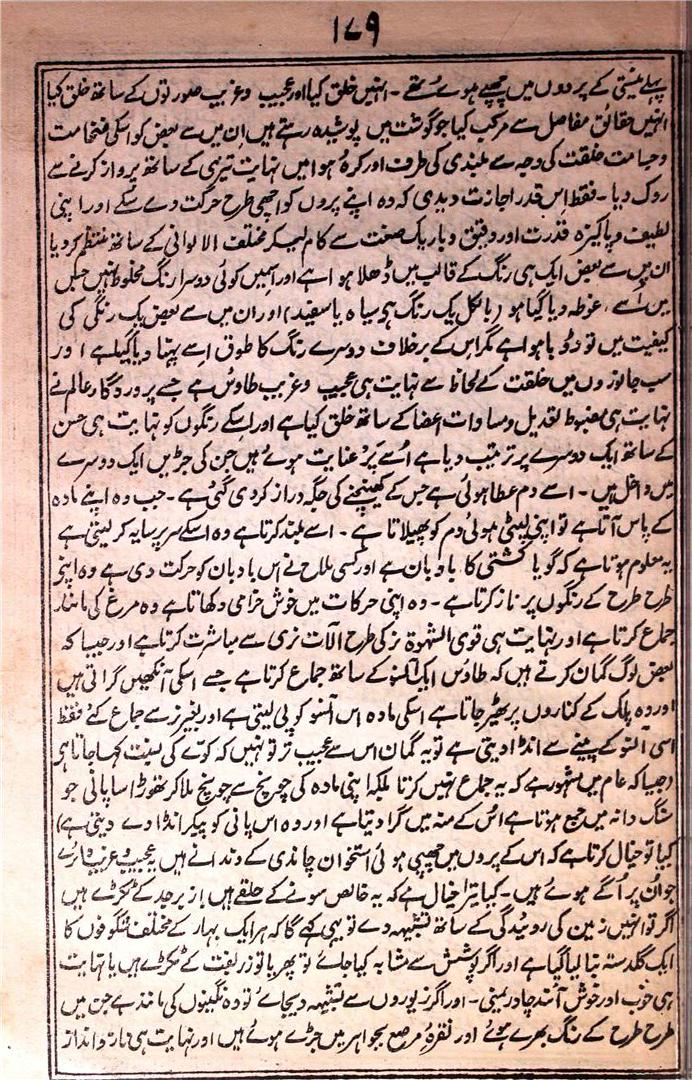 ۱۷۹
پہلے نیستی کے پردوں میں چھپے ہوئے تھے ۔ انہیں خلق کیا اور عجیب وغریب صورتوں کے ساتھ خلق کیا
انہیں حقائق مفاصل سے مرکب کیا جو گوشت میں پوشیدہ رہتے ہیں ان میں سے بعض کو اسکی ضخامت
وجسامت خلقت کی وجہ سے بلندی کی طرف اور کرۂ ہوا میں نہایت تیزی کے ساتھ پرواز کرنے سے
روک دیا ۔ فقط اس قدر اجازت دیدی کہ وہ اپنے پروں کو اچھی طرح حرکت دے سکے اور اپنی
لطیف وپاکیزہ قدرت اور دقیق وباریک صنعت سے کام لیکر مختلف الالوانی کے ساتھ منتظم کردیا
ان میں سے بعض ایک ہی رنگ کے قالب میں ڈھلا ہوا ہے اور اسمیں کوئی دوسرا رنگ مخلوط نہیں جس
میں اسے غوطہ دیا گیا ہو (بالکل یک رنگ ہی سیاہ یا سفید) اور ان میں سے بعض یک رنگی کی
کیفیت میں تو ڈوبا ہوا ہے مگر اس کے برخلاف دوسرے رنگ کا طوق اسے پہنا دیا گیا ہے اور
سب جانوروں میں خلقت کے لحاظ سے نہایت ہی عجیب وغریب طاؤس ہے جسے پروردگار عالم نے
نہایت ہی مضبوط تعدیل ومساوات اعضا کے ساتھ خلق کیا ہے اور اسکے رنگوں کو نہایت ہی حسن
کے ساتھ ایک دوسرے پر ترتیب دیا ہے اُسے پر عنایت ہوئے ہیں جن کی جڑیں ایک دوسرے
میں داخل ہیں ۔ اسے دم عطا ہوئی ہے جس کے کھینچنے کی جگہ دراز کردی گئی ہے ۔ جب وہ اپنے مادہ
کے پاس آتا ہے تو اپنی لپٹی ہوئی دم کو پھیلاتا ہے ۔ اسے بلند کرتا ہے وہ اسکے سر پر سایہ کر لیتی ہے
یہ معلوم ہوتا ہے کہ گویا کشتی کا بادبان ہے اور کسی ملاح نے اس بادبان کو حرکت دی ہے وہ اپنی
طرح طرح کے رنگوں پر ناز کرتا ہے ۔ وہ اپنی حرکات میں خوش خرامی دکھاتا ہے وہ مرغ کی مانند
جماع کرتا ہے اور نہایت ہی قوی الشہوۃ نر کی طرح آلات نری سے مباشرت کرتا ہے اور جیسا کہ
بعض لوگ گمان کرتے ہیں کہ طاؤس ایک آنسو کے ساتھ جماع کرتا ہے جسے اسکی آنکھیں گراتی ہیں
اور وہ پلک کے کناروں پر ٹھیر جاتا ہے اسکی مادہ اس آنسو کو پی لیتی ہے اور بغیر نر سے جماع کئے فقط
اسی آنسو کے پینے سے انڈا دیتی ہے تو یہ گمان اس سے عجیب تر تو نہیں کہ کوے کی نسبت کہا جاتا ہی
(جیسا کہ عام میں مشہور ہے کہ یہ جماع نہیں کرتا بلکہ اپنی مادہ کی چونچ سے چونچ ملا کر تھوڑا سا پانی جو
سنگ دانہ میں جمع ہوتا ہے اُس کے منہ میں گرا دیتا ہے اور وہ اس پانی کو پیکر انڈا دے دیتی ہے)
کیا تو خیال کرتا ہے کہ اس کے پروں میں چھپی ہوئی استخوان چاندی کے دندانے ہیں یہ عجیب وغریب دائرے
جو ان پر اُگے ہوئے ہیں ۔ کیا تیرا خیال ہے کہ یہ خالص سونے کے حلقے ہیں یا زبرجد کے ٹکڑے ہیں
اگر تو انہیں زمین کی روئیدگی کے ساتھ تشبیہہ دے تو یہی کہے گا کہ ہر ایک بہار کے مختلف شگوفوں کا
ایک گلدستہ بنا لیا گیا ہے اور اگر پوشش سے مشابہ کیا جائے تو پھر یا تو زربفت کے ٹکڑے ہیں یا نہایت
ہی خوب اور خوش آئند چادر یمنی ۔ اور اگر زیوروں سے تشبیہہ دیجائے تو وہ نگینوں کی مانند ہے جن میں
طرح طرح کے رنگ بھرے ہوئے اور نقرۂ مرصع بجواہر میں جڑے ہوئے ہیں اور نہایت ہی ناز وانداز